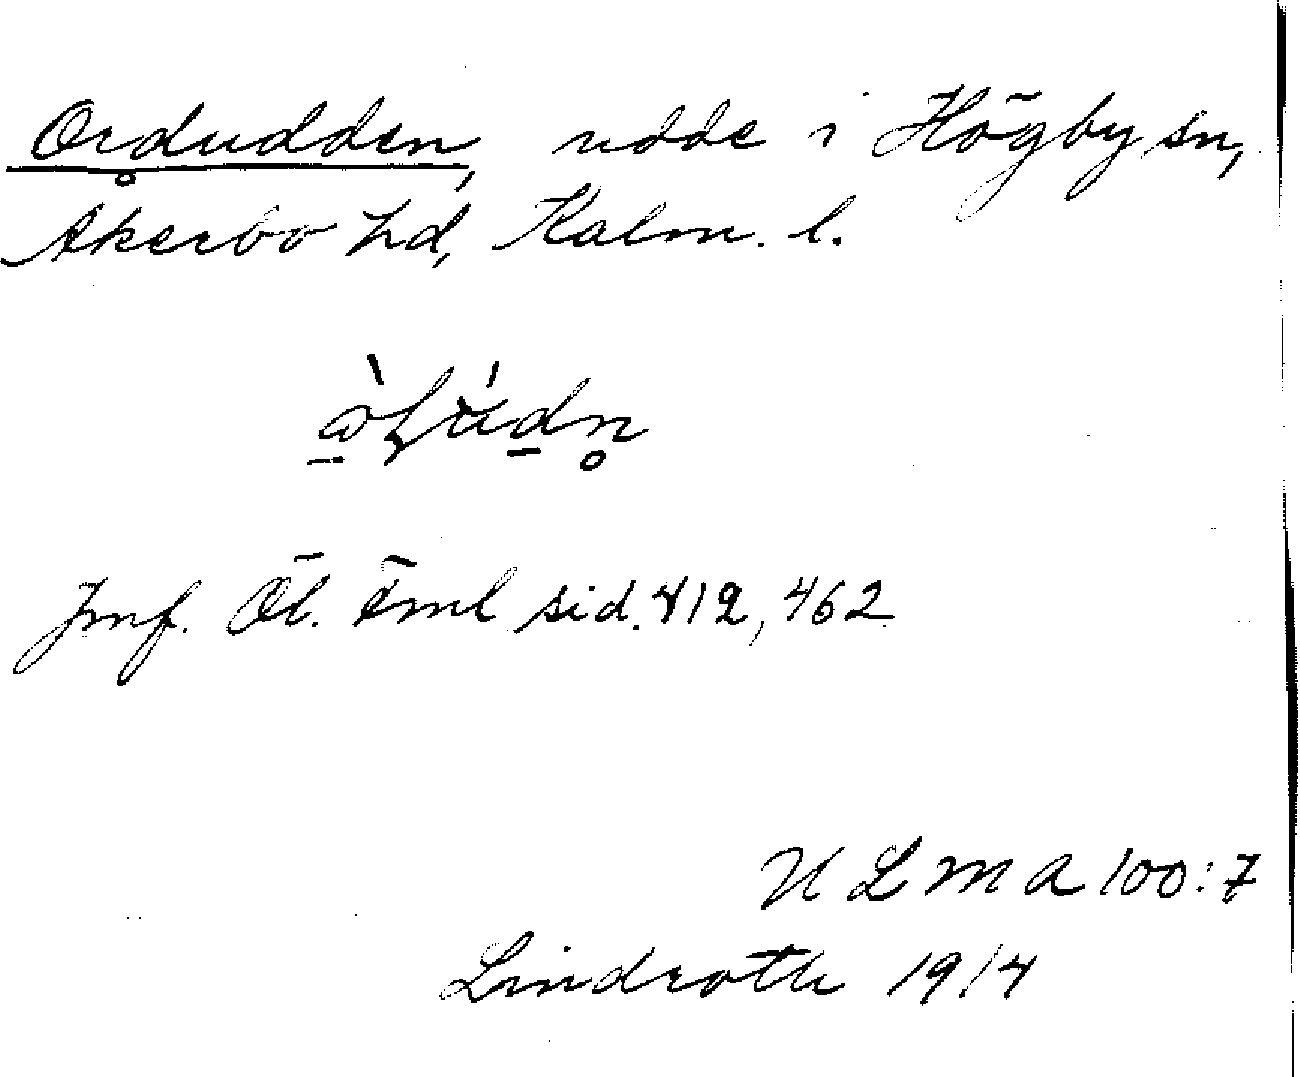 Ordudden, udde i Högby sn,
Åkerbo hd, Kalm. l.
Jmf. Öl. Fml sid. 412, 462
ULMA 100:7
Lindroth 1914